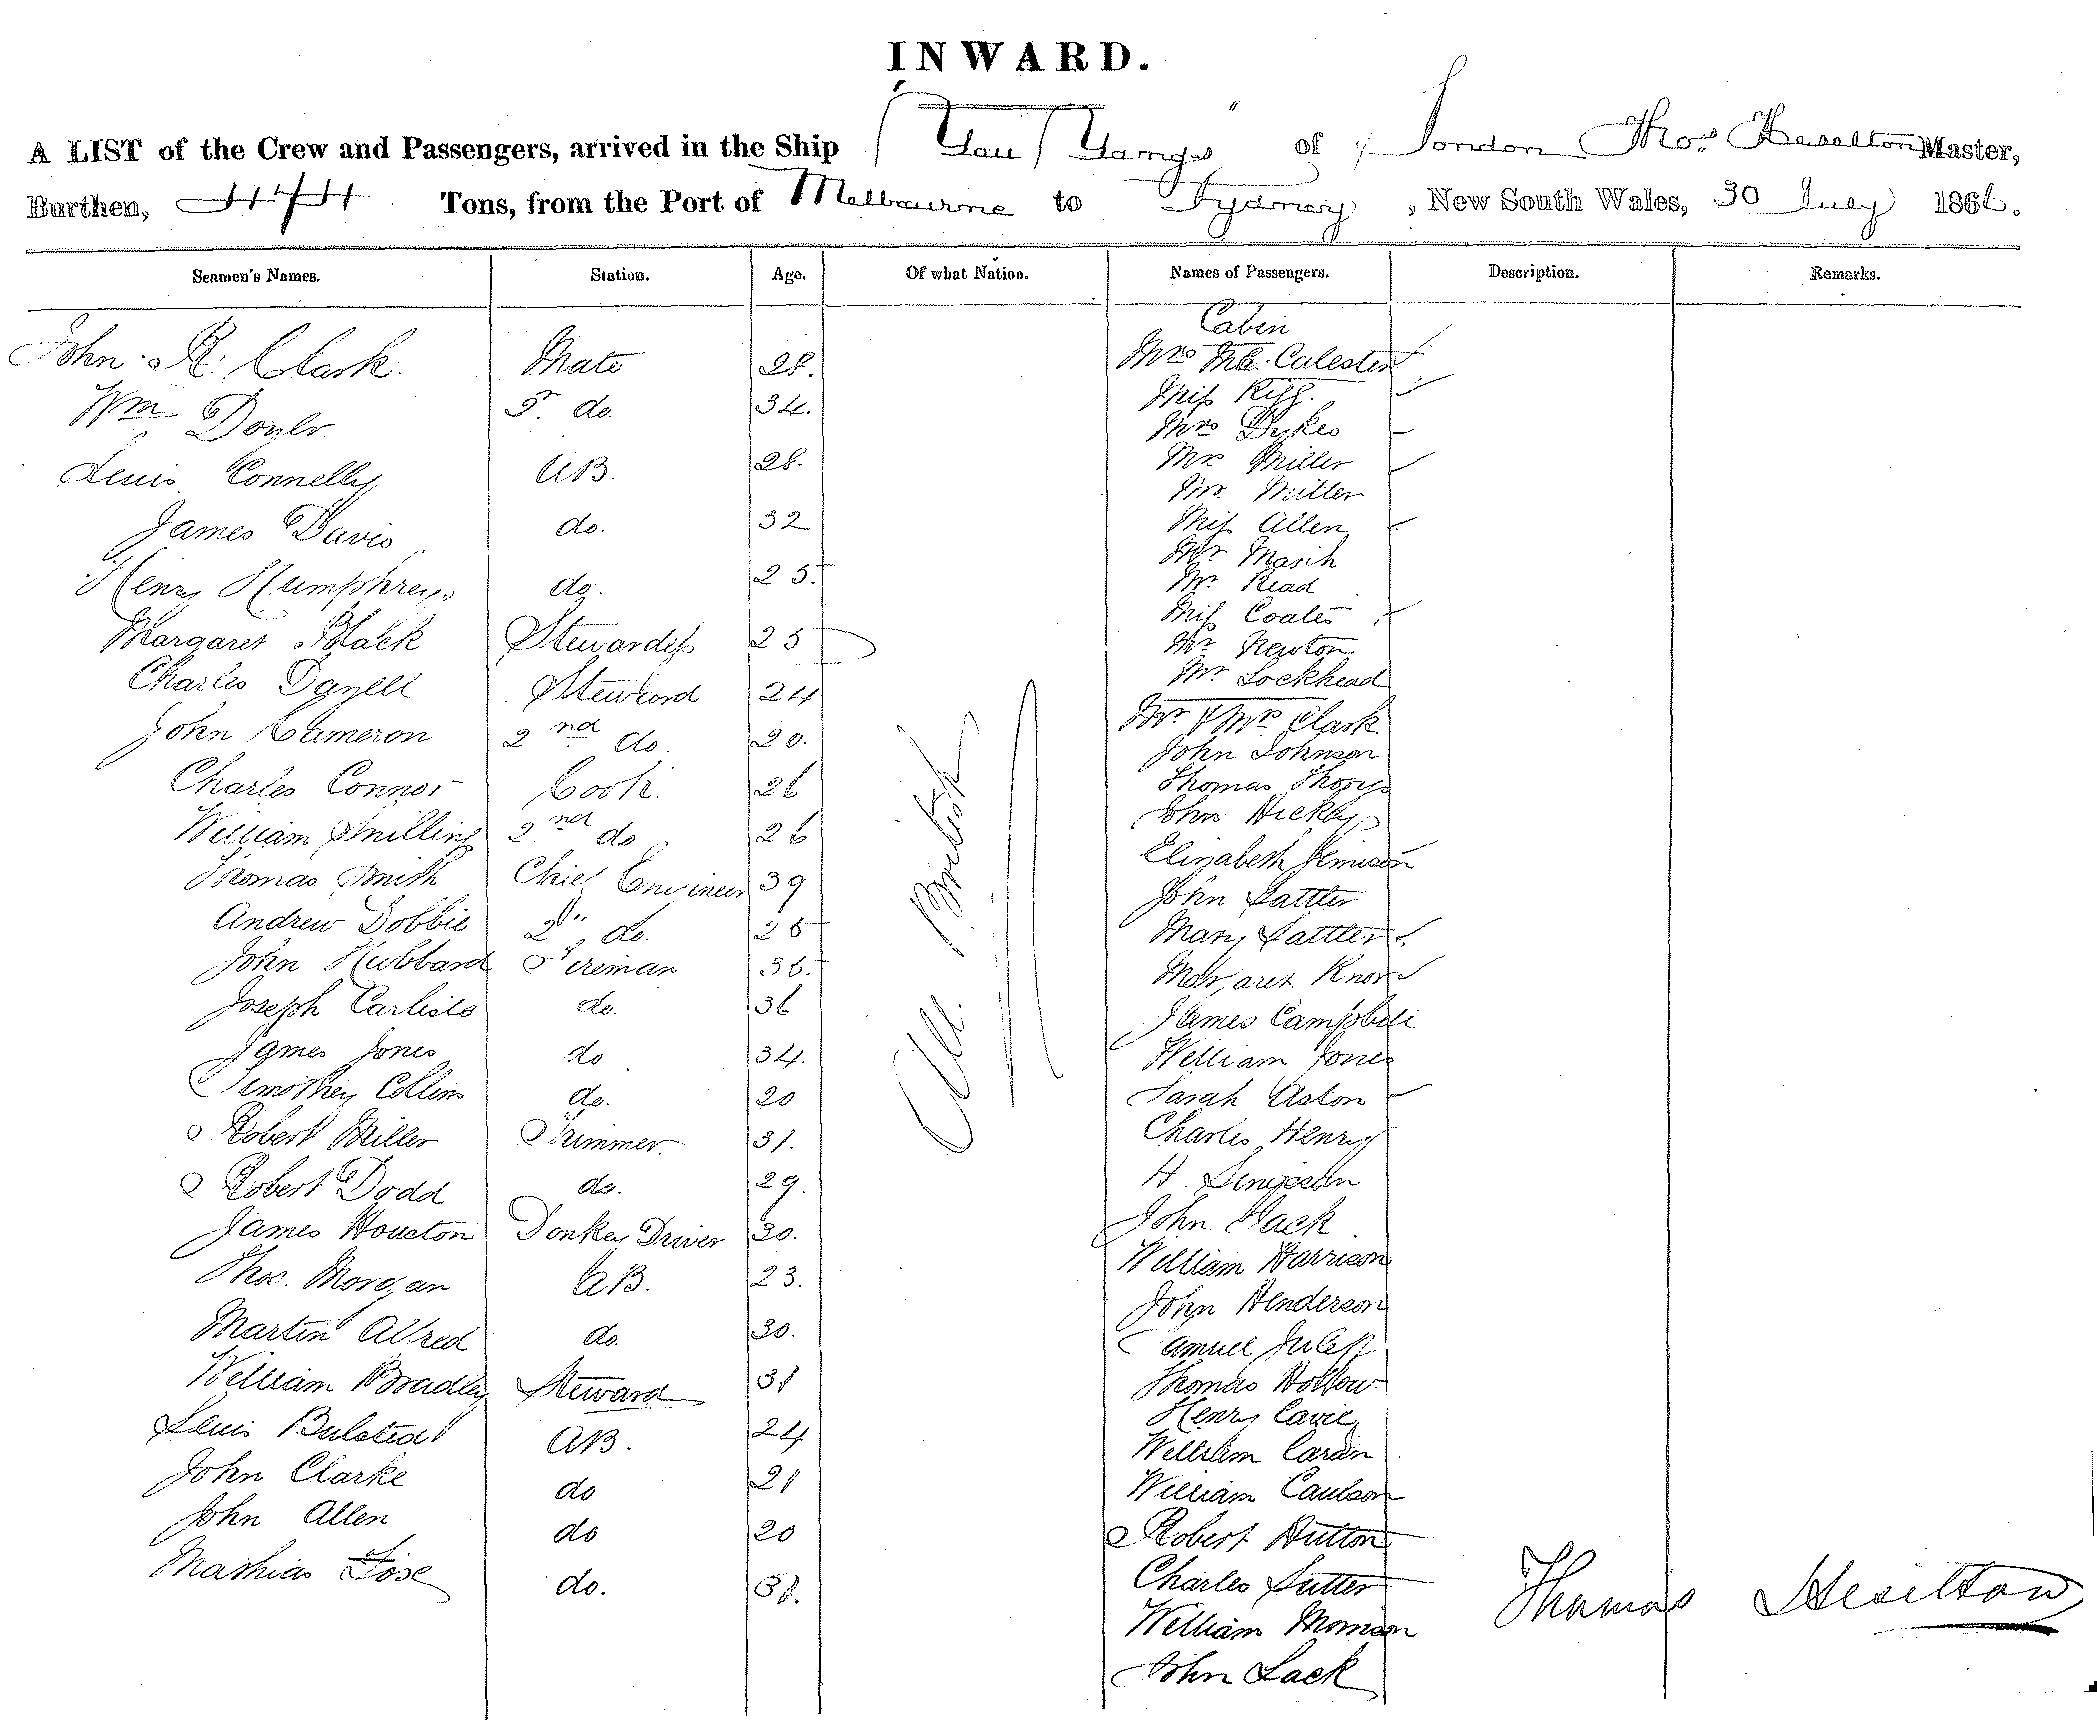 INWARD.
A LIST of the Crew and Passengers, arrived in the Ship "You Yangs" of London Thos Heselton Master,
Burthen, 474 Tons, from the Port of Melbourne to Sydney, New South Wales, 30 July 1866.
Seamen's Names. Station. Age. Of what Nation. Names of Passengers. Description. Remarks.
John R. Clark. Mate 28.
Wm Doyle do. 34.
Lewis Connelly AB. 28.
James Davis do. 32
Henry Humphreys do. 25.
Margaret Black Stewardess 25
Charles Steward 24
John Cameron 2nd do. 20.
Charles Connor Cook. 26
William 2nd do 26
Thomas Smith Chief Engineer 39
Andrew Dobbie 2 do. 25
John Hubbard Fireman 36.
Joseph Carlisle do. 36
James Jones do 34.
Timothey Collins do. 20
Robert Miller Trimmer 31.
Robert Dodd do. 29.
James Houston Donkey Driver 30.
Thos. Morgan AB. 23.
Martin Alfred do. 30.
William Bradley Steward 31
Lewis AB. 24
John Clarke do 21
John Allen do 20
Mathias do. 31.
All British
Cabin
Mrs
Miss
Mrs Dykes
Mr Miller
Mr Miller
Miss Allen
Mr Marsh
Mr. Read
Miss Coates
Mr Newton
Mr Lockhead
Mr & Mrs Clark
John Johnson
Thomas
John Hickby
Elizabeth
John Sattler
Mary Sattler
Margaret Knox
James Campbell
William Jones
Sarah Aston
Charles Henry
H. Simpson
John Slack
William Harrison
John Henderson
Samuel
Thomas Hollow
Henry
William
William Caulson
Robert Hutton
Charles Sutter
William
John Lack
Thomas Heselton